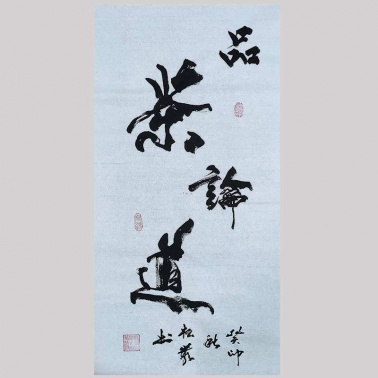 品茶論道
癸卯
秋
松
书